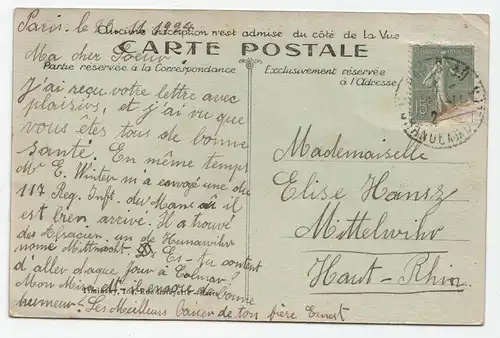 Paris. le 23. 11. 1924
Aucune inscription n'est admise du côté de la Vue
CARTE POSTALE
Ma cher Soeur.
Partie réservée à la Correspondance
Exclusivement réservée
à l'Adresse
J'ai reçu votre lettre avec
plaisirs, et j'ai vu que
vous êtes tous de bonne
santé. En même temps
Mr E. Winter m'a envoyé une du
117 Reg. Inft. du Mans où il
est bien arrivé. Il a trouvé
des Elsacien, un de Hunawihr
nomé Mittnacht
Es-tu content
d'aller chaque jour à Colmar
Mon Mimi est il encore de bonne
humeur. Les Meilleurs baiser de ton frère Ernest
Mademoiselle
Elise Hansz
Mittelwihr
Haut-Rhin
15c